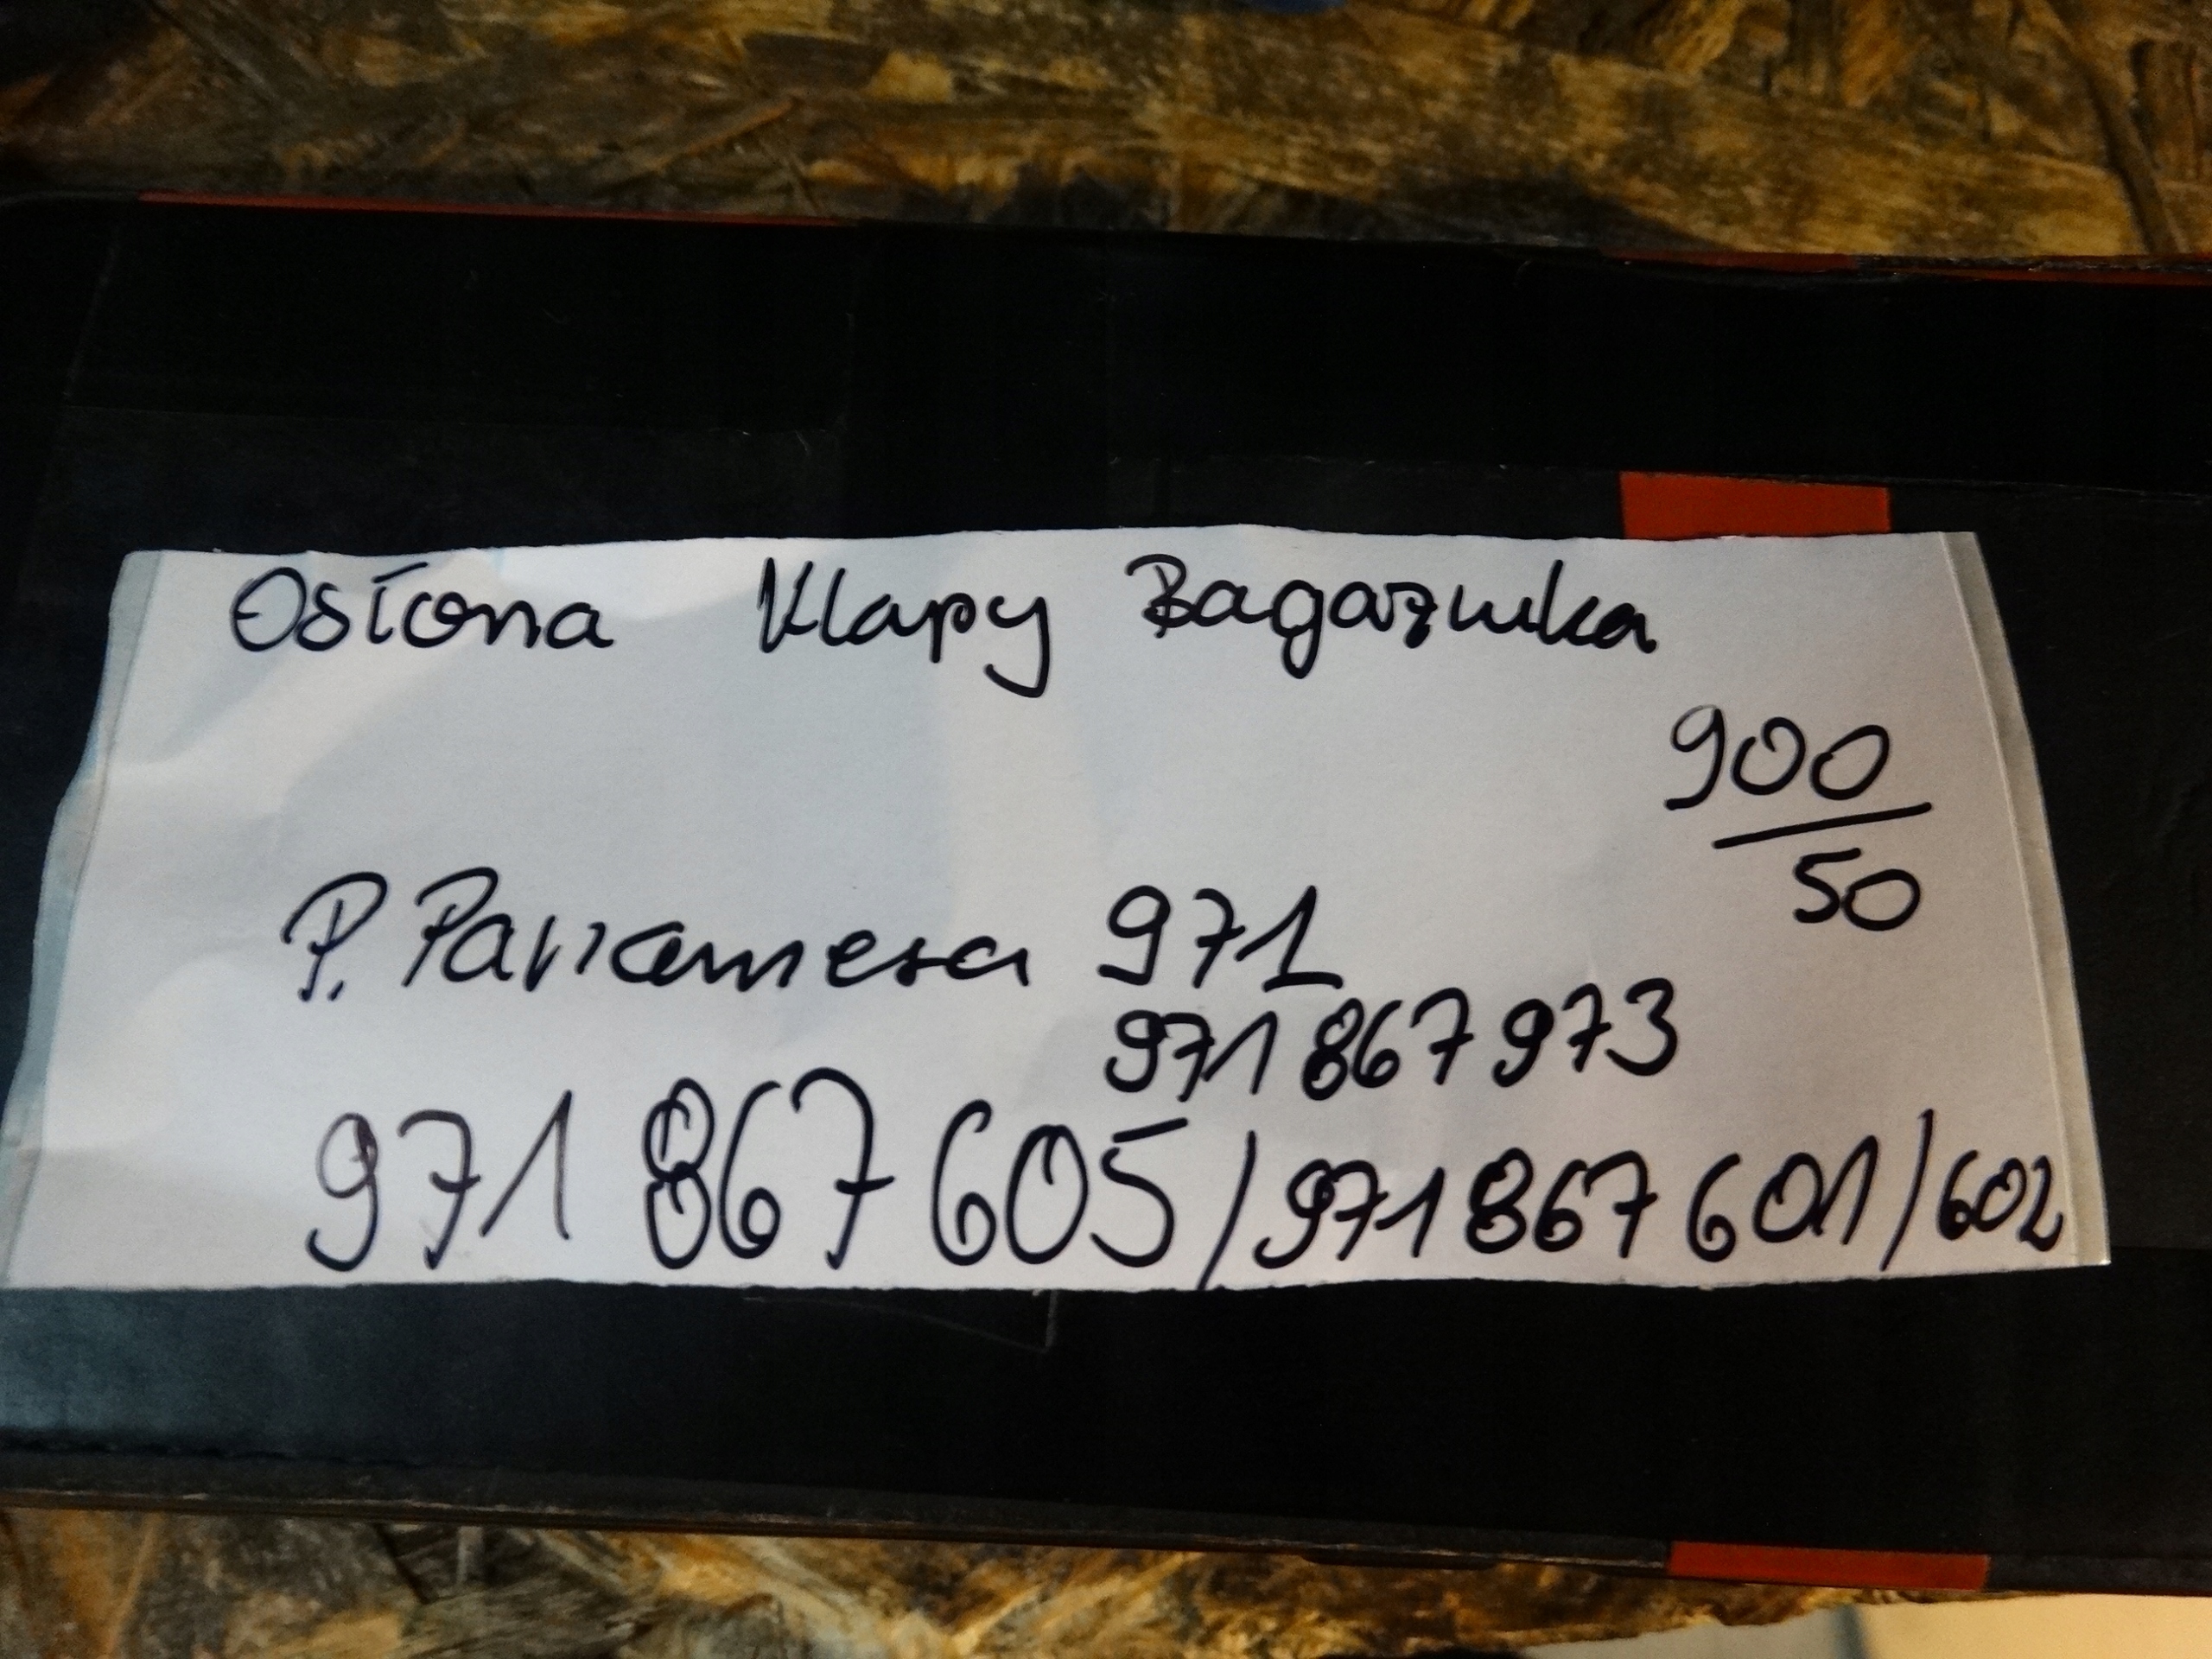 Osłona Klapy Bagażnika
900
50
P. Panamera 971
971 867 973
971 867 605/971 867 601/602